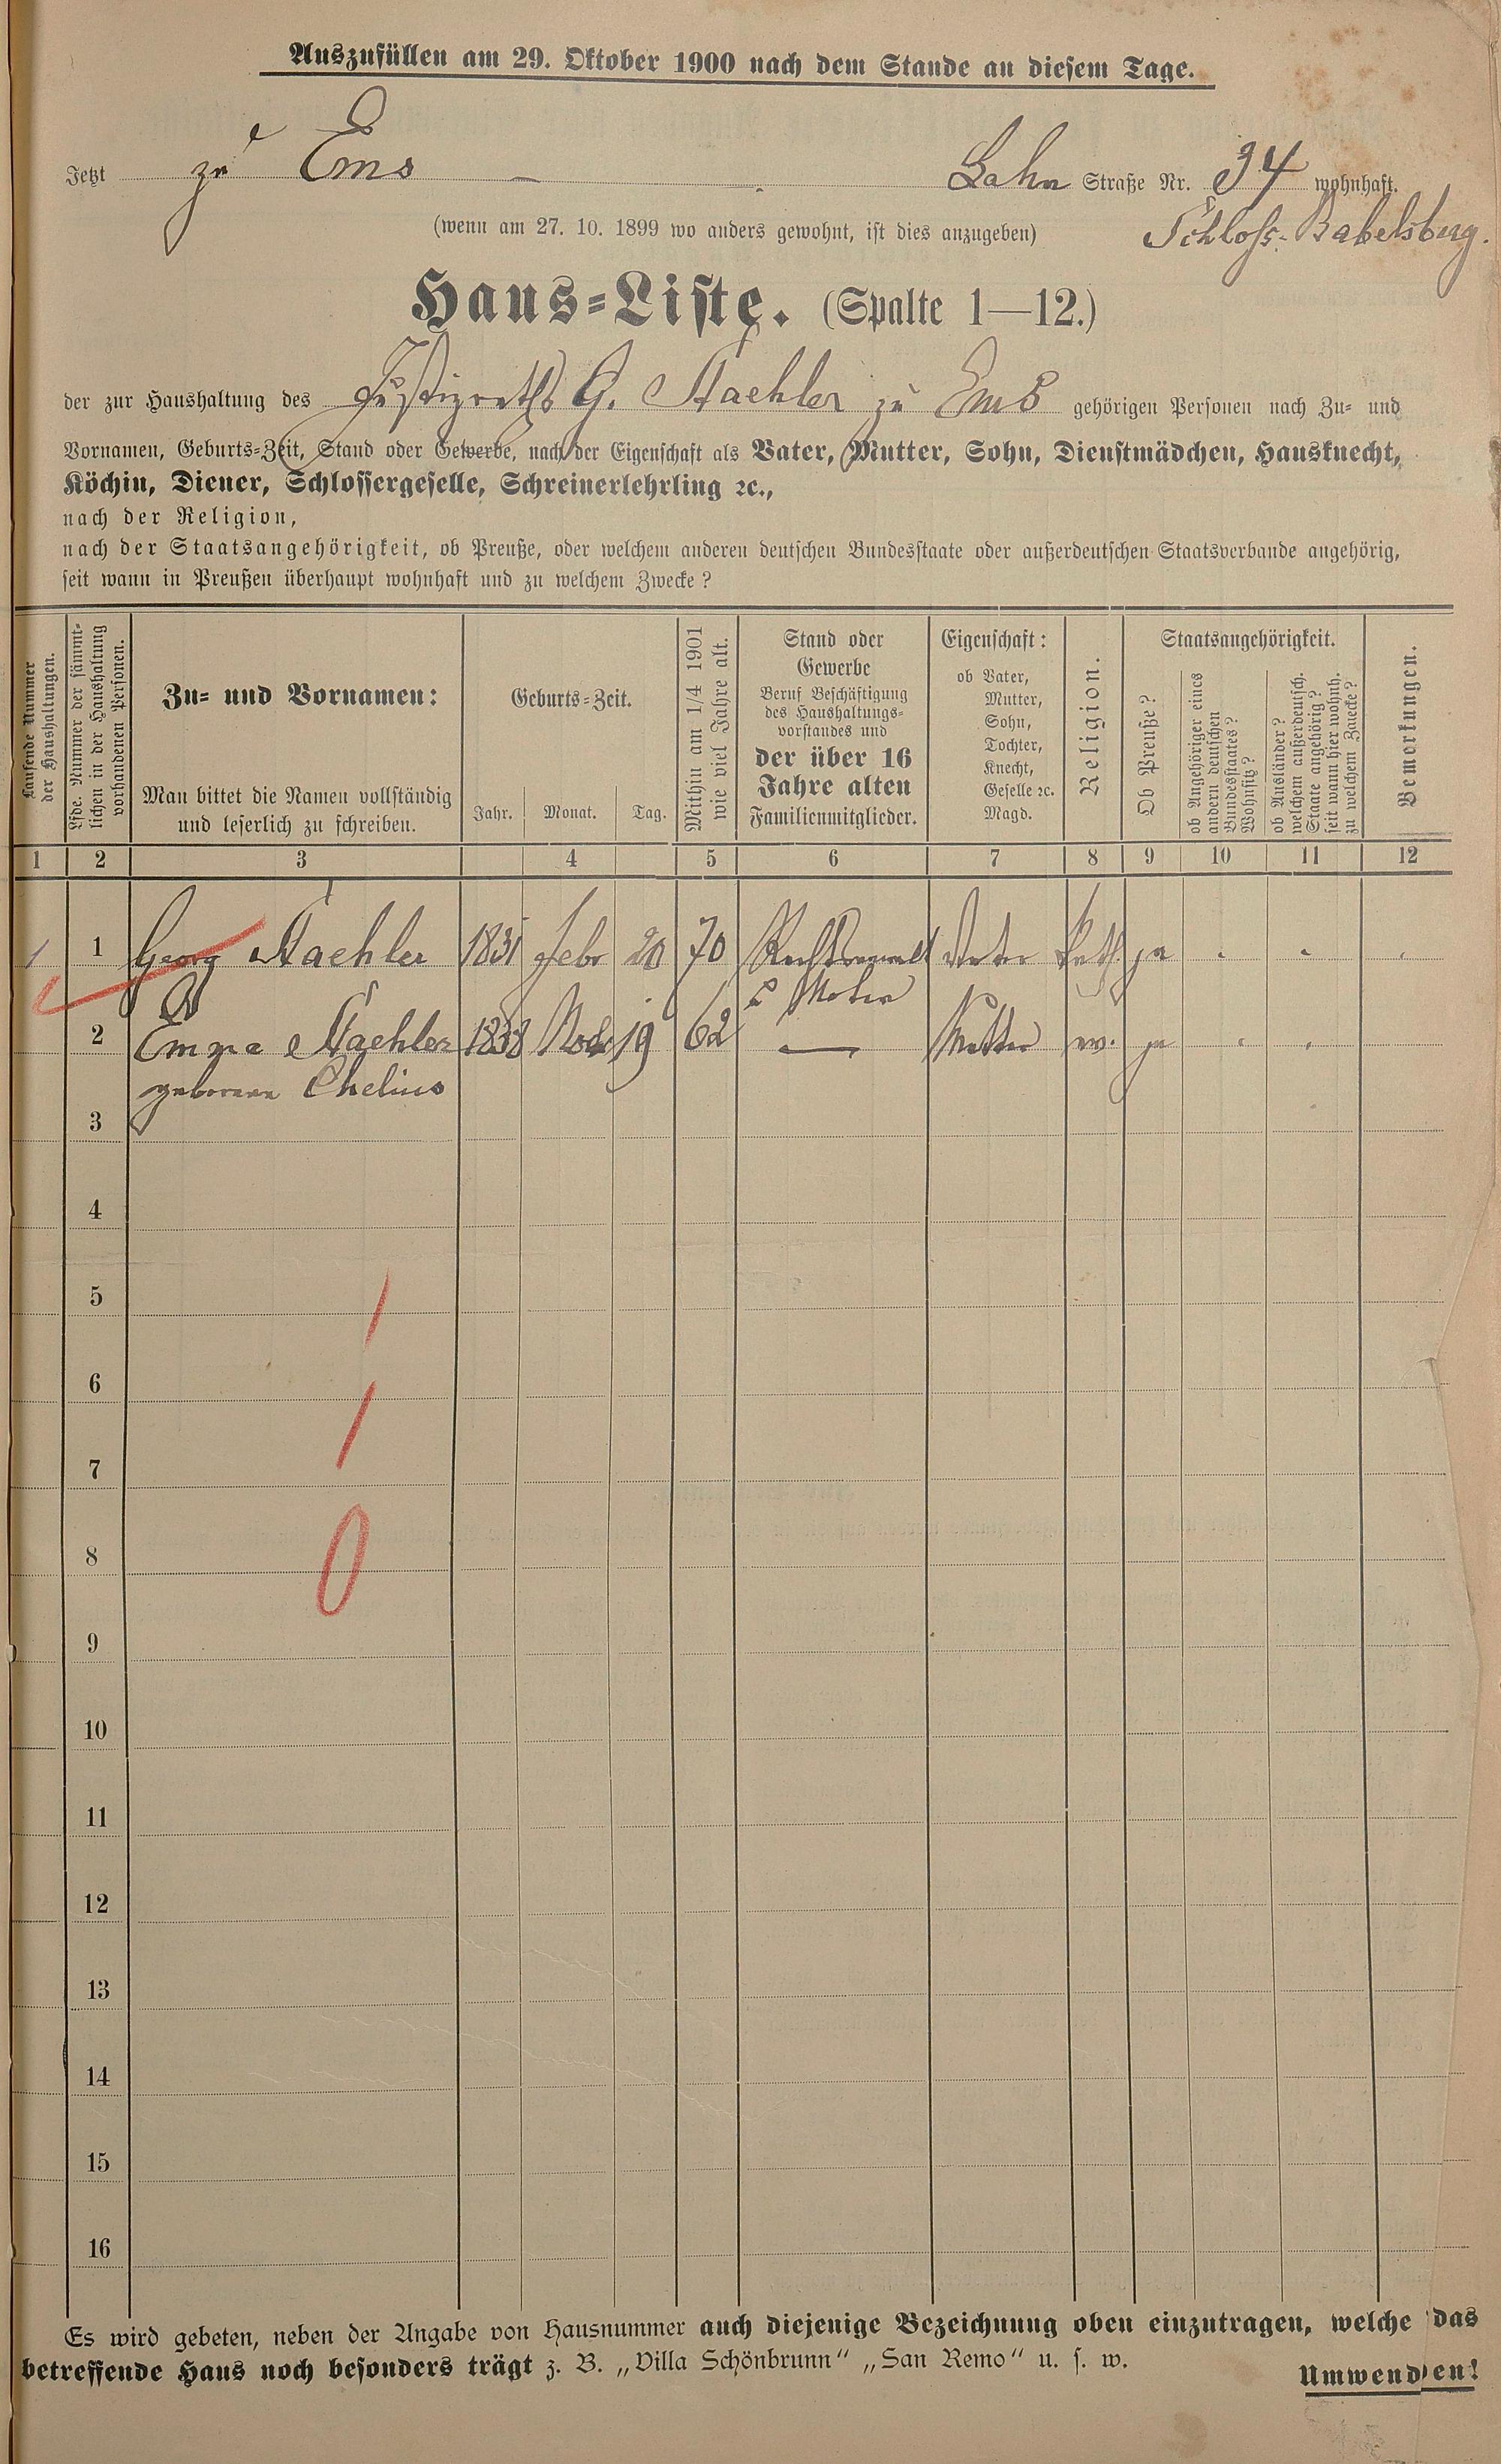 Auszufüllen am 29. Oktober 1900 nach dem Stande an diesem Tage.
Jetzt zu Ems Lahn Straße Nr. 34 wohnhaft.
(wenn am 27. 10. 1899 wo anders gewohnt, ist dies anzugeben) Schloss-Babelsberg.
Haus-Liste. (Spalte 1—12.)
der zur Haushaltung des Justizraths G. Staehler zu Ems gehörigen Personen nach Zu- und
Vornamen, Geburts-Zeit, Stand oder Gewerbe, nach der Eigenschaft als Vater, Mutter, Sohn, Dienstmädchen, Hausknecht,
Köchin, Diener, Schlossergeselle, Schreinerlehrling ꝛc.,
nach der Religion,
nach der Staatsangehörigkeit, ob Preuße, oder welchem anderen deutschen Bundesstaate oder außerdeutschen Staatsverbande angehörig,
seit wann in Preußen überhaupt wohnhaft und zu welchem Zwecke?
Laufende Nummer
der Haushaltungen.
Lfde. Nummer der sämmt-
lichen in der Haushaltung
vorhandenen Personen.
Zu- und Vornamen:
Man bittet die Namen vollständig
und leserlich zu schreiben.
Geburts-Zeit.
Jahr. Monat. Tag.
Mithin am 1/4 1901
wie viel Jahre alt.
Stand oder
Gewerbe
Beruf Beschäftigung
des Haushaltungs-
vorstandes und
der über 16
Jahre alten
Familienmitglieder.
Eigenschaft:
ob Vater,
Mutter,
Sohn,
Tochter,
Knecht,
Geselle ꝛc.
Magd.
Religion.
Staatsangehörigkeit.
Ob Preuße?
ob Angehöriger eines
andern deutschen
Bundesstaates?
Wohnsitz?
ob Ausländer?
welchem außerdeutsch.
Staate angehörig?
seit wann hier wohnh.
zu welchem Zwecke?
Bemerkungen.
1 2 3 4 5 6 7 8 9 10 11 12
1 1 Georg Staehler 1831 Febr 20 70 Rechtsanwalt Vater kath. ja
2 Emma Staehler 1838 Nov. 19 62 — Mutter ev. ja
geborene Chelius
3
4
5
6
7
8
9
10
11
12
13
14
15
16
1
1
0
Es wird gebeten, neben der Angabe von Hausnummer auch diejenige Bezeichnung oben einzutragen, welche das
betreffende Haus noch besonders trägt z. B. „Villa Schönbrunn“ „San Remo“ u. s. w.
Umwenden!